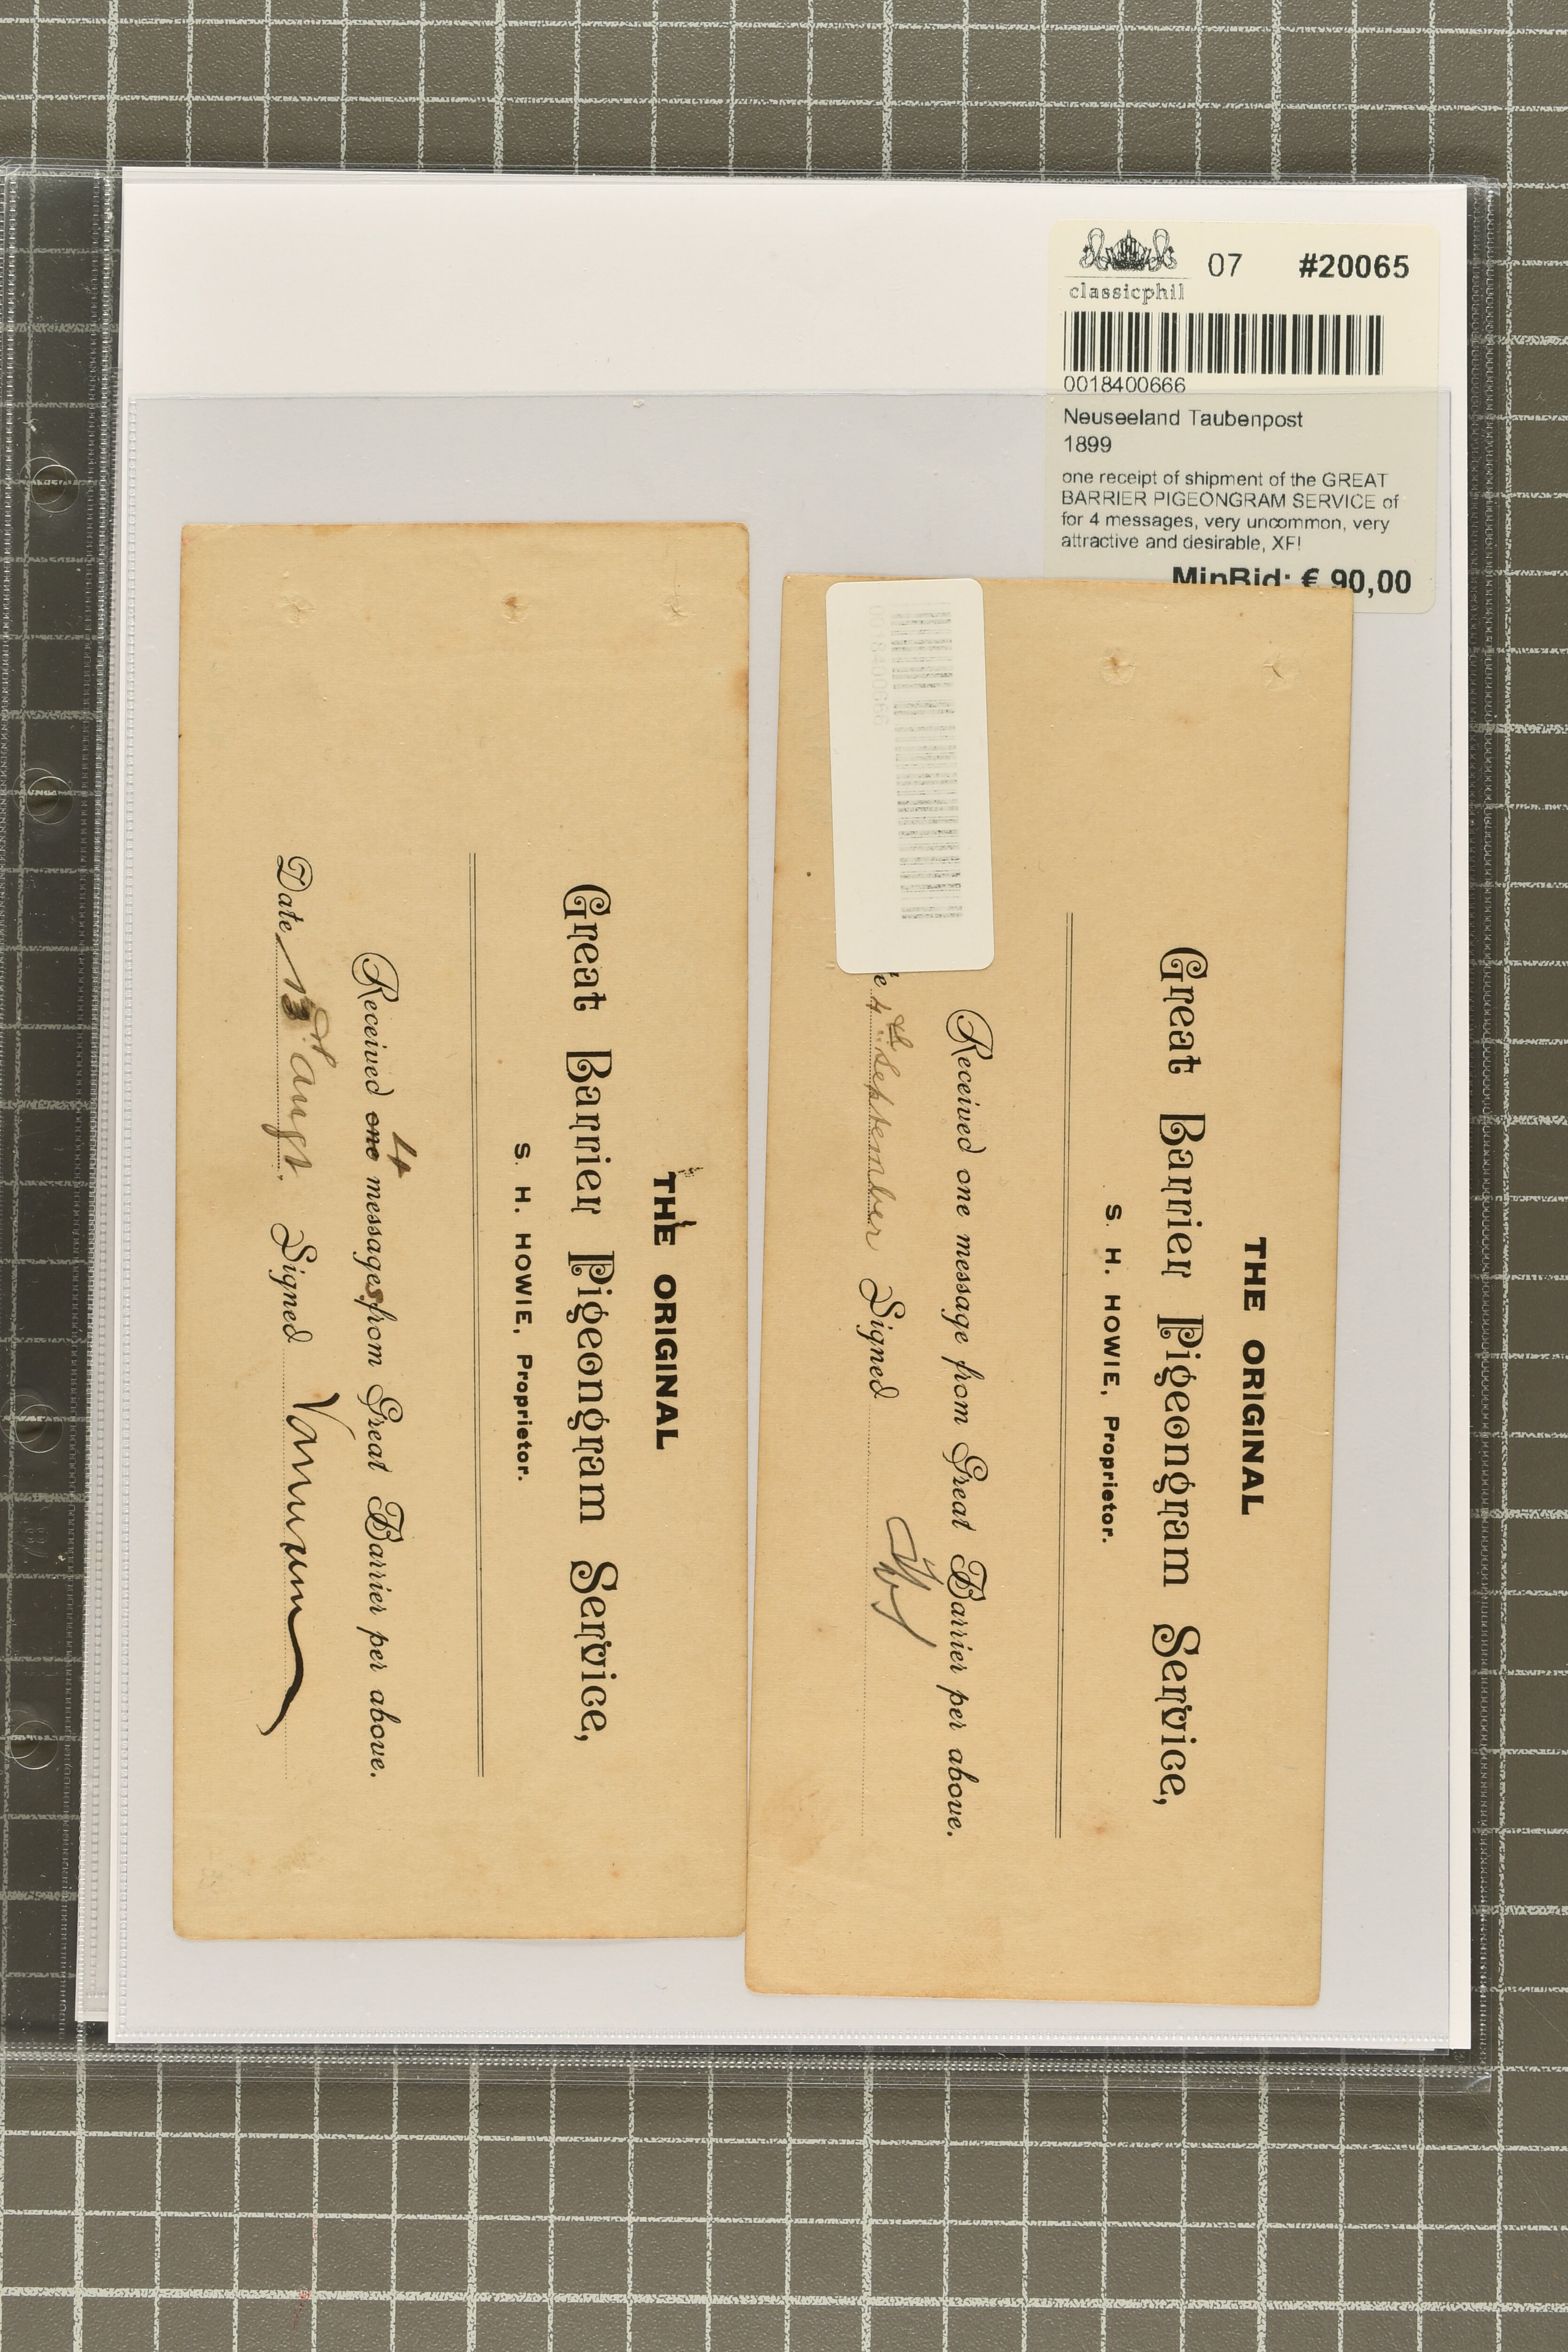 classicphil
07 #20065
0018400666
Neuseeland Taubenpost
1899
one receipt of shipment of the GREAT
BARRIER PIGEONGRAM SERVICE of
for 4 messages, very uncommon, very
attractive and desirable, XF!
MinBid: € 90,00
THE ORIGINAL
Great Barrier Pigeongram Service,
S. H. HOWIE, Proprietor.
4
Received one messages from Great Barrier per above.
Date 13th Augt. Signed
THE ORIGINAL
Great Barrier Pigeongram Service,
S. H. HOWIE, Proprietor.
Received one message from Great Barrier per above.
e 4th September Signed
0018400666